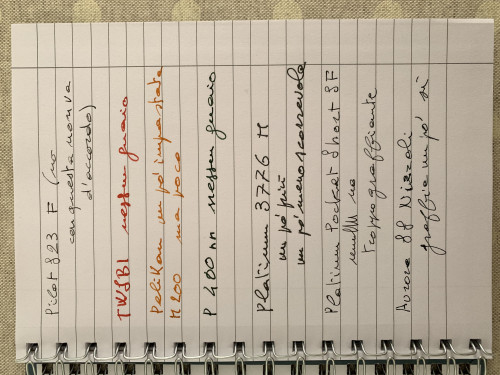 Pilot 823 F (no
con questa non va
d'accordo)
TWSBI nessun guaio
Pelikan un po' impastata
M200 ma poco
P 400 nn nessun guaio
Platinum 3776 M
un po' più
un po' meno scorrevole
Platinum Pocket Short 8F
no
troppo graffiante
Aurora 88 Nizzoli
graffia un po' sì